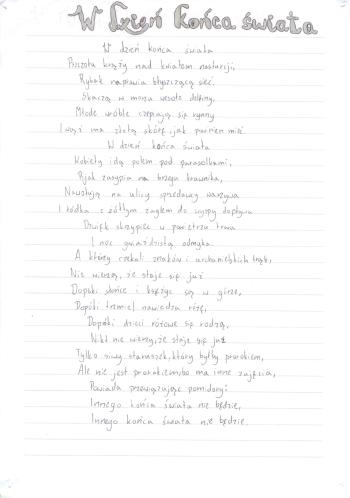 W Dzień Końca świata
W dzień końca świata
Pszczoła krąży nad kwiatem nasturcji,
Rybak naprawia błyszczącą sieć.
Skaczą w morzu wesołe delfiny,
Młode wróble czepiają się rynny
I wąż ma złotą skórę, jak powinien mieć
W dzień końca świata
Kobiety idą polem pod parasolkami,
Pijak zasypia na brzegu trawnika,
Nawołują na ulicy sprzedawcy warzywa
I łódka z żółtym żaglem do wyspy dopływa
Dźwięk skrzypiec w powietrzu trwa
I noc gwiaździstą odmyka.
A którzy czekali znaków i archanielskich trąb,
Nie wierzą, że staje się już
Dopóki słońce i księżyc są w górze,
Dopóki trzmiel nawiedza różę,
Dopóki dzieci różowe się rodzą,
Nikt nie wierzy, że staje się już
Tylko siwy staruszek, który byłby prorokiem,
Ale nie jest prorokiem, bo ma inne zajęcia,
Powiada przewiązując pomidory:
Innego końca świata nie będzie,
Innego końca świata nie będzie.